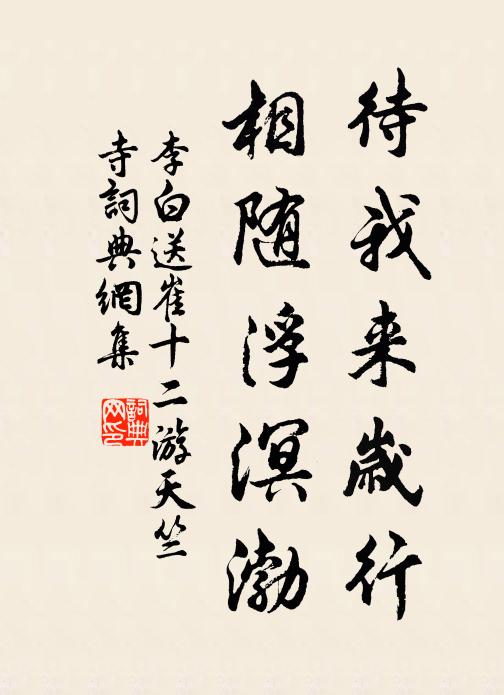 待我来歲行
相随浮溟渤
李白送崔十二游天竺
寺詞典網集
詞典网印